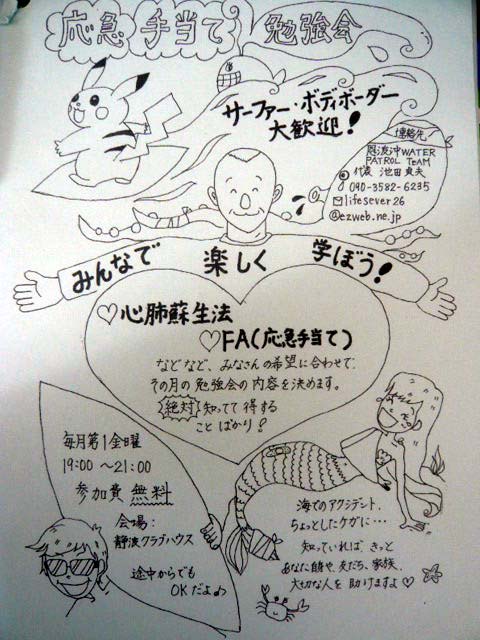 応急手当て 勉強会
サーファー・ボディボーダー
大歓迎!
連絡先
WATER
PATROL TEAM
代表 池田
090-3582-6235
lifesever26
@ezweb.ne.jp
みんなで 楽しく 学ぼう!
♡心肺蘇生法
♡FA(応急手当て)
などなど、みなさんの希望に合わせて、
その月の勉強会の内容を決めます。
絶対 知ってて得する
ことばかり!
毎月第1金曜
19:00〜21:00
参加費 無料
会場:
静波クラブハウス
途中からでも
OKだよ♪
海でのアクシデント、
ちょっとしたケガに…
知っていれば、きっと
あなた自身や、友だち、家族、
大切な人を助けますよ♡